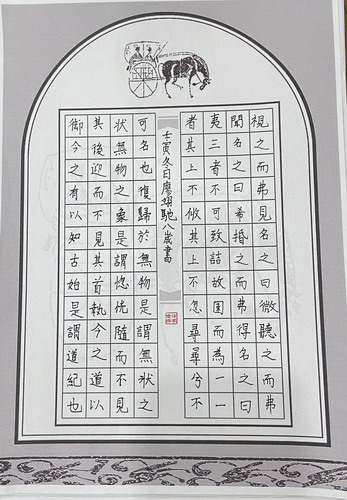 視之而弗見名之曰微聽之而弗
聞名之曰希捪之而弗得名之曰
夷三者不可致詰故而為一一
者其上不攸其上不忽尋尋兮不
壬寅冬日廖翊馳八歲書
可名也復歸於無物是謂無狀之
狀無物之象是謂惚恍隨而不見
其後迎而不見其首執今之道以
御今之有以知古始是謂道紀也